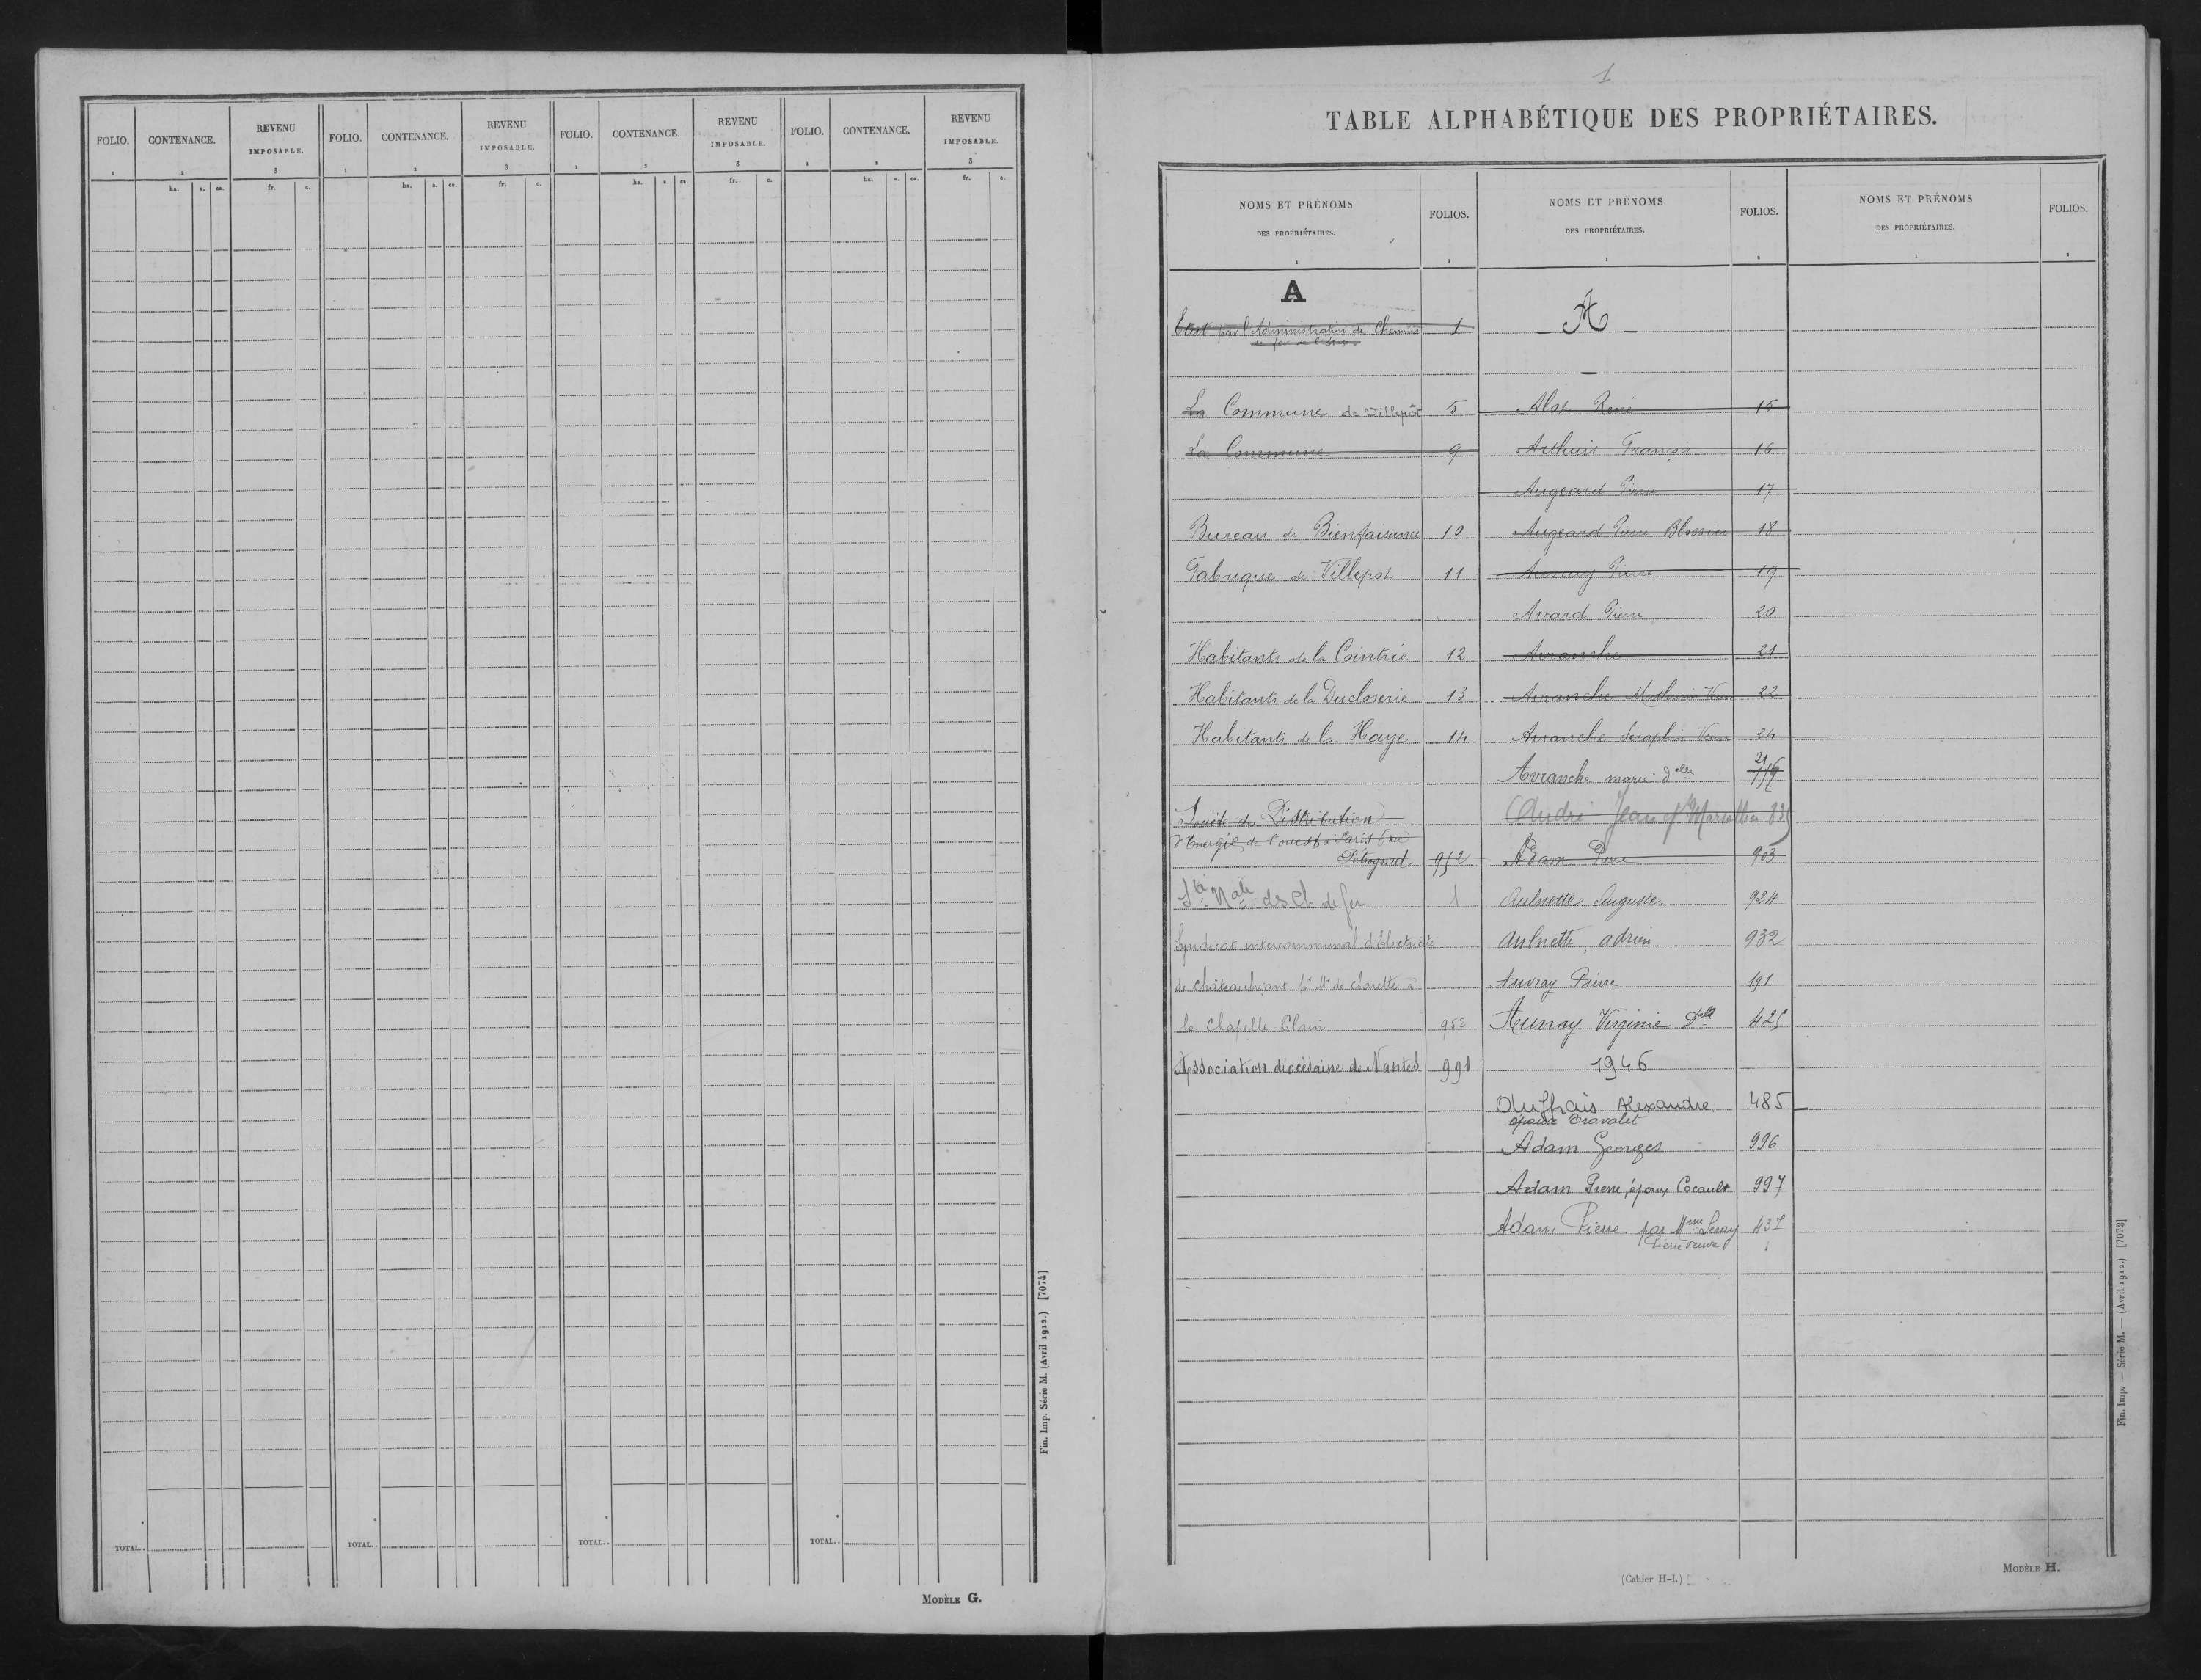 FOLIO. CONTENANCE. REVENU IMPOSABLE. FOLIO. CONTENANCE. REVENU IMPOSABLE. FOLIO. CONTENANCE. REVENU IMPOSABLE. FOLIO. CONTENANCE. REVENU IMPOSABLE.
1 2 3 1 2 3 1 2 3 1 2 3
ha. a. ca. fr. c. ha. a. ca. fr. c. ha. a. ca. fr. c. ha. a. ca. fr. c.
TOTAL.. TOTAL.. TOTAL.. TOTAL..
Fin. Imp. Série M. (Avril 1912.) [7074]
MODÈLE G.
1
TABLE ALPHABÉTIQUE DES PROPRIÉTAIRES.
NOMS ET PRÉNOMS DES PROPRIÉTAIRES. FOLIOS. NOMS ET PRÉNOMS DES PROPRIÉTAIRES. FOLIOS. NOMS ET PRÉNOMS DES PROPRIÉTAIRES. FOLIOS.
1 2 1 2 1 2
A
Etat par l'Administration des Chemins 1
de fer de l'Etat
La Commune de Villepôt 5
La Commune 9
Bureau de Bienfaisance 10
Fabrique de Villepot 11
Habitants de la Cointrie 12
Habitants de la Ducloserie 13
Habitants de la Haye 14
Société de Distribution
d'Energie de l'ouest à Paris
952
Sté Nale des Ch de fer 1
Syndicat intercommunal d'Electricité
de Châteaubriant Mr de Charette à
la Chapelle Glain 953
Association diocésaine de Nantes 991
- A -
Alot René 15
Arthuis François 16
Augeard Pierre 17
Augeard Pierre Blossier 18
Auvray Pierre 19
Avard Pierre 20
Avranche 21
Avranche Mathurin Veuve 22
Avranche Séraphin Veuve 24
Avranche marie dlle 21
André Jean
Adam Pierre 903
Aulnette Auguste. 924
Aulnette adrien 932
Auvray Pierre 191
Aunay Virginie Delle 425
1946
Auffrais Alexandre 485
époux Cravalet
Adam Georges 996
Adam Pierre, époux Cocault 997
Adam Pierre par Mme Leray 437
Pierre veuve
(Cahier H-I.)
MODÈLE H.
Fin. Imp. — Série M. — (Avril 1912.) [7073]